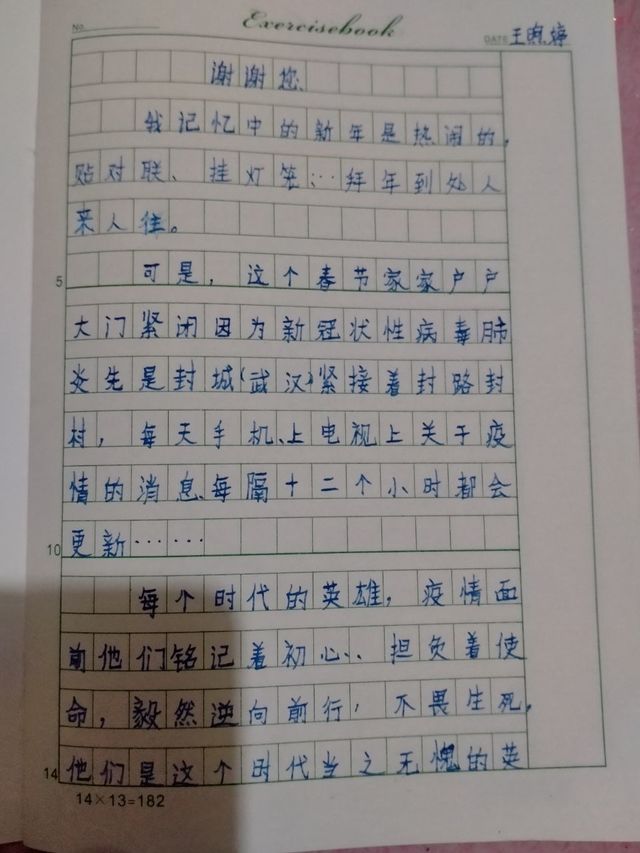 No.
Exercisebook
DATE 王 婷
谢谢您
我记忆中的新年是热闹的,
贴对联、挂灯笼…拜年到处人
来人往。
可是,这个春节家家户户
大门紧闭因为新冠状性病毒肺
炎先是封城(武汉)紧接着封路封
村,每天手机、上电视上关于疫
情的消息、每隔十二个小时都会
更新……
每个时代的英雄,疫情面
前他们铭记着初心、担负着使
命,毅然逆向前行,不畏生死,
他们是这个时代当之无愧的英
5
10
14
14×13=182